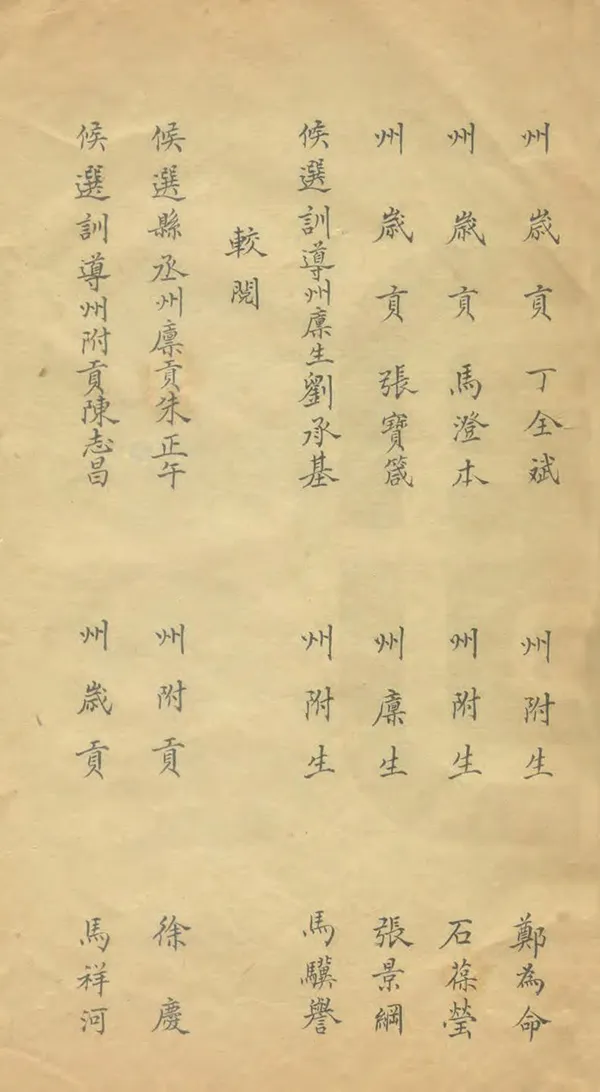 州歲貢丁全斌
州附生鄭為命
州歲貢馬澄本
州附生石葆瑩
州歲貢張寶箴
州廩生張景綱
候選訓導州廩生劉承基
州附生馬驥譽
較閱
候選縣丞州廩貢朱正午
州附貢徐慶
候選訓導州附貢陳志昌
州歲貢馬祥河